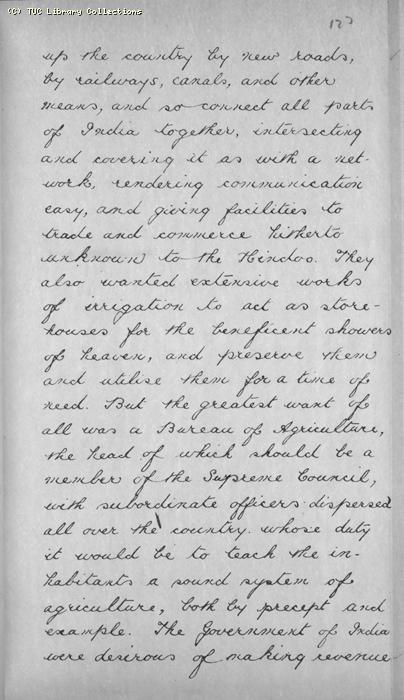 (C) TUC Library Collections
up the country by new roads,
by railways, canals, and other
means, and so connect all parts
of India together, intersecting
and covering it as with a net-
work, rendering communication
easy, and giving facilities to
trade and commerce hitherto
unknown to the Hindoo. They
also wanted extensive works
of irrigation to act as store-
houses for the beneficent showers
of heaven, and preserve them
and utilise them for a time of
need. But the greatest want of
all was a Bureau of Agriculture,
the head of which should be a
member of the Supreme Council,
with subordinate officers dispersed
all over the country whose duty
it would be to teach the in-
habitants a sound system of
agriculture, both by precept and
example. The Government of India
were desirous of making revenue